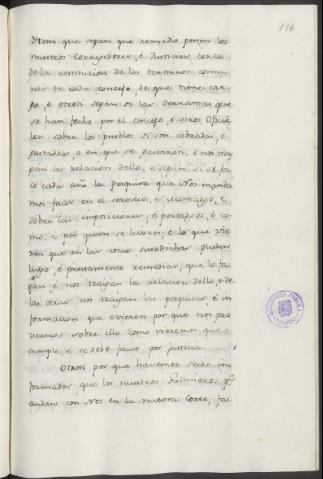 156
Ytem que sepan que remedio ponen los
nuestros Corregidores, é Justicias cerca
de la restitucion de los terminos comu-
nes de cada concejo, de que tienen car-
go, é otrosi sepan si las derramas que
se han fecho por el concejo, é otros Oficia-
les sobre los pueblos si son cobradas, ó
gastadas, ó en que se gastaron, é nos tray-
gan la relacion dello, é sepan si se fa-
ce cada año la pesquisa que Nos manda-
mos facer en el servicio, é montazgo, é
sobre las imposiciones, é portazgos, é co-
mo, é por quien se llevan; é lo que vie-
ren que en las cosas susodichas pueden
luego, é prestamente remediar, que lo fa-
gan é nos traigan la relacion dello, é de
las otras nos traigan las pesquisas, é in-
formacion que ovieren por que nos pro-
veamos sobre ello como vieremos que
cumple, é se debe facer por justicia.
Otrosi por que havemos seido in-
formados que los nuestros Gallineros q.e
andan con Nos en la nuestra Corte, fas-
BIBLIOTECA PUBLICA
TOLEDO